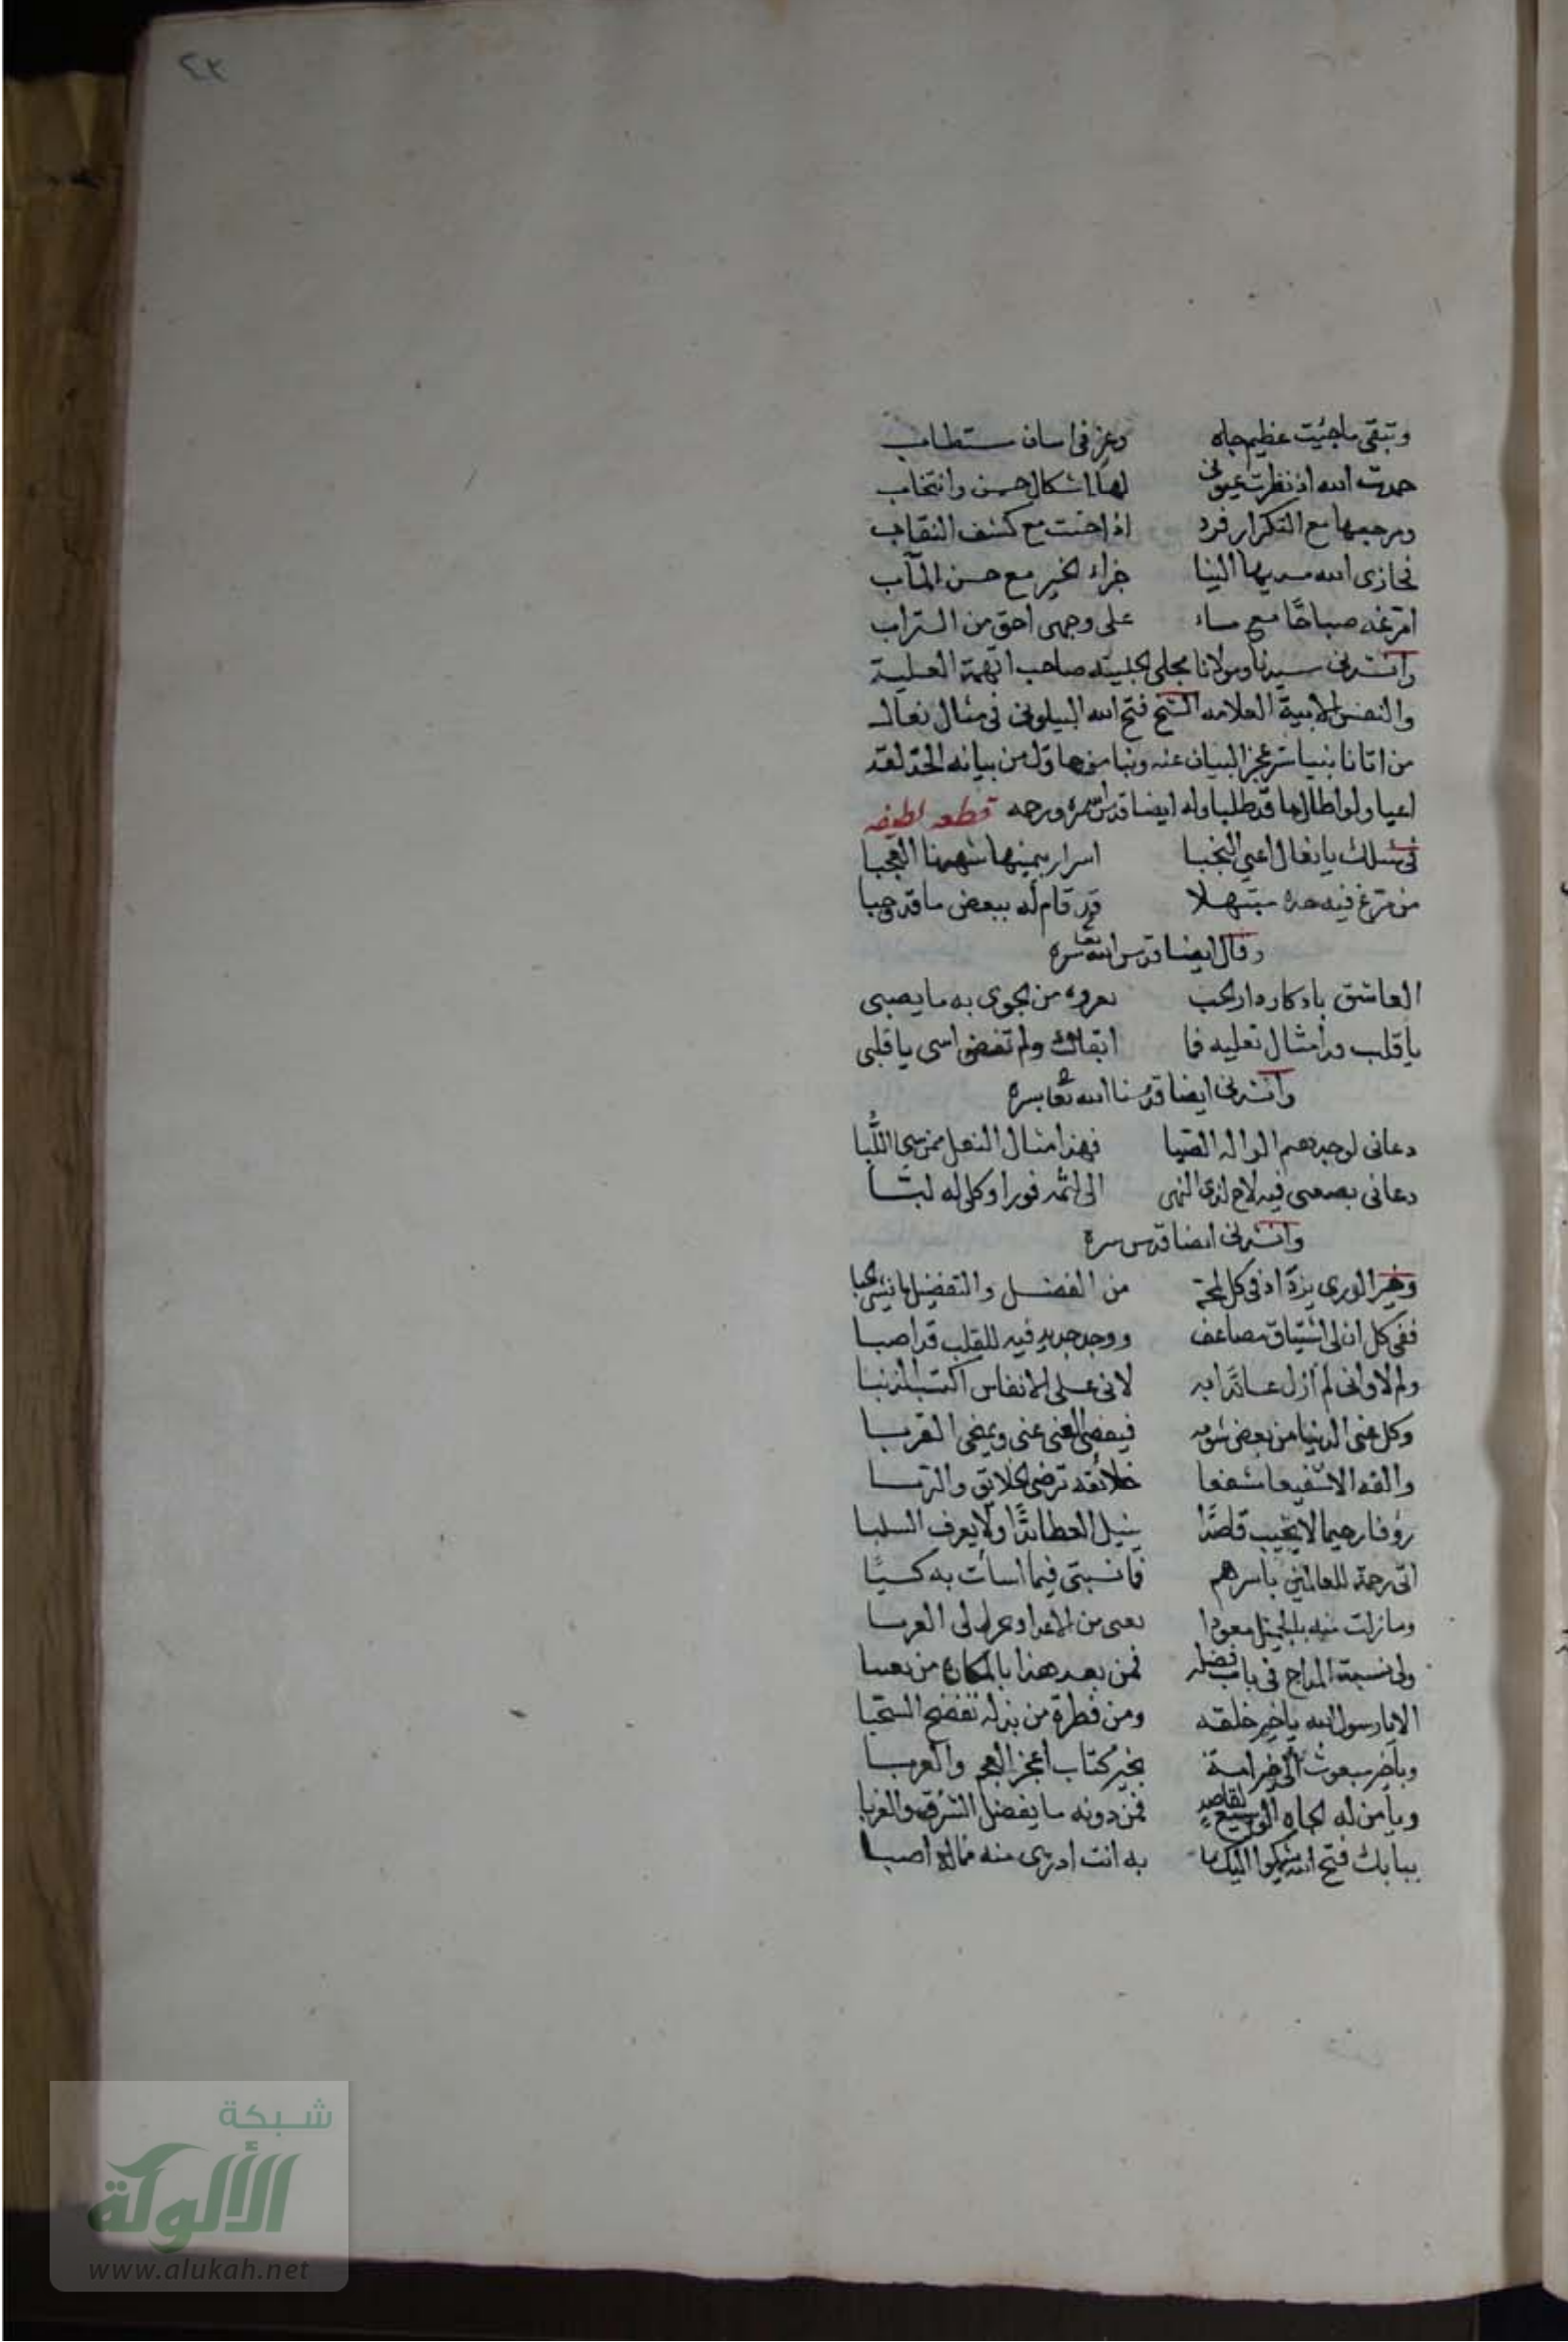 ٤٣
وتبقى ما حييت عظيم جاه وعز في امان مستطاب
حمدت الله اذ نظرت عيوني لها اشكال حسن وانتخاب
ومرحبها مع التكرار فرد اذا اخنت مع كشف النقاب
فجازى الله مسديها الينا جزاء الخير مع حسن المآب
امرغه صباحًا مع مساء على وجهى احق من التراب
وانشدني سيدنا ومولانا مجلى صاحب الهمة العلية
والنفس الابية العلامه الشيخ فتح الله البيلوني في مثال نعال
من اتانا عجز البيان عنه من بيانه الحق لقد
اعيا ولو اطال ما قد طلبا وله ايضا قدس سره ورحمه قطعه لطيفه
في مثلك يا نعال اعلى النجبا اسرار بيمنها شهدنا العجبا
من مرغ فيه خده مبتهلا قد قام له ببعض ما قد وجبا
وقال ايضا قدس الله تعا سره
العاشق بادكار دار الحب يعروه من الجوى به ما يصبى
يا قلب وذا مثال نعليه فما ابقاك ولم تفض اسى يا قلبى
وانشدني ايضا قدسنا الله تعا بسره
دعانى لوجد فهذا مثال النعل اللبا
دعانى فيه لاح لذى النهى الى لثمه فورا وكلى له لبا
وانشدني ايضا قدس سره
وخير الورى يزداد في كل لمحة من الفضل والتفضيل
ففى كل ان لى اشتياق مضاعف ووجد جديد فيه للقلب قد اصبا
ولم لا وانى لم ازل عائذا به لانى على الانفاس اكتسب الذنبا
وكل عنى الدنيا من بعض فيقصى العنى عنى ويمضى
والقه الا شفيعا مشفعا خلائقه ترضى الخلايق والربا
رؤفا رحيما لا يخيب قاصدًا ينيل العطا ولا يعرف السلبا
اتى رحمة للعالمين باسرهم فما نسبتى فيما اسأت به كسبًا
وما زلت منه بالجميل معودا من الاعدا
ولى نسبة المداح في باب فضله فمن بعد هذا بالمكارم من
الا يا رسول الله يا خير خلقه ومن قطرة من بذله تفضح السحبا
ويا خير مبعوث الى خير امة بخير كتاب اعجز العجم والعربا
ويا من له الجاه الوسيع لقاصد فمن دونه ما يفضل الشرق والغربا
ببابك فتح الله يشكوا اليك ما به انت ادرى منه
شبكة
الألوكة
www.alukah.net